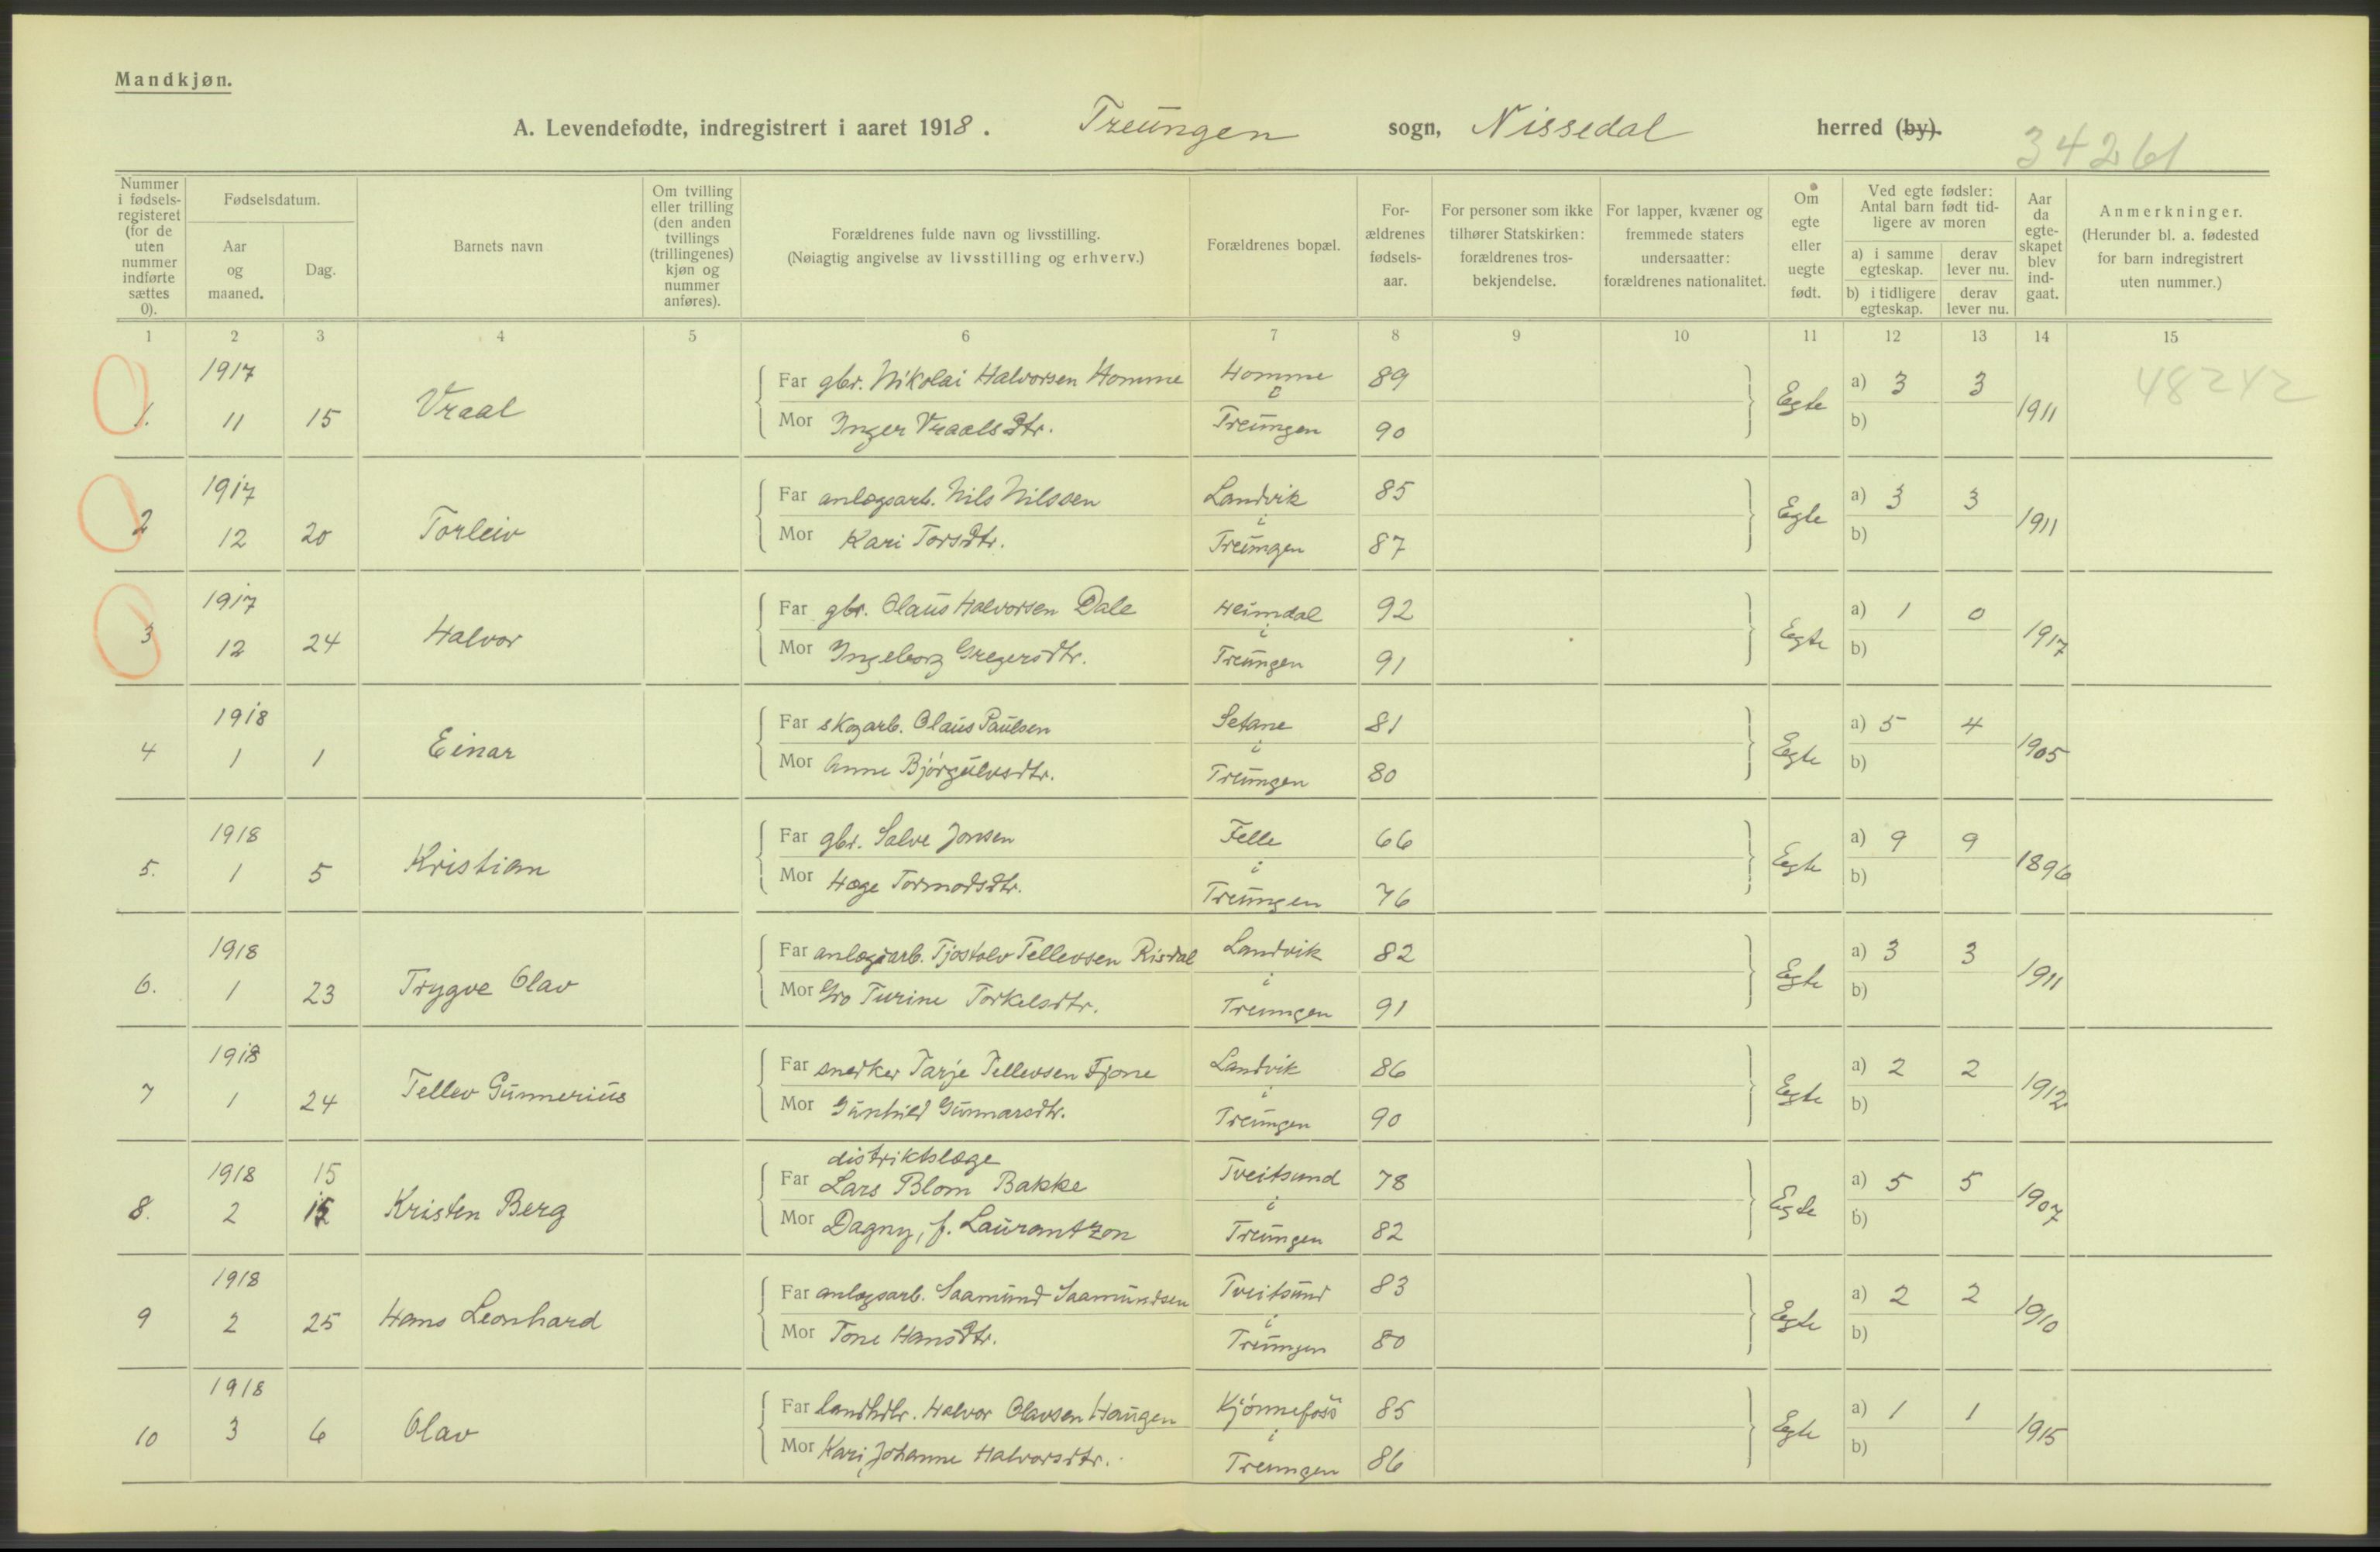 Mandkjøn.
A. Levendefødte, indregistrert i aaret 1918. Treungen sogn, Nissedal herred (by).
34261
Nummer i fødsels-registeret (for de uten nummer indførte sættes 0).
Fødselsdatum.
Aar og maaned.
Dag.
Barnets navn
Om tvilling eller trilling (den anden tvillings (trillingenes) kjøn og nummer anføres).
Forældrenes fulde navn og livsstilling.
(Nøiagtig angivelse av livsstilling og erhverv.)
Forældrenes bopæl.
For-ældrenes fødsels-aar.
For personer som ikke tilhører Statskirken: forældrenes tros-bekjendelse.
For lapper, kvæner og fremmede staters undersaatter: forældrenes nationalitet.
Om egte eller uegte født.
Ved egte fødsler: Antal barn født tid-ligere av moren
a) i samme egteskap. derav lever nu.
b) i tidligere egteskap. derav lever nu.
Aar da egte-skapet blev ind-gaat.
Anmerkninger.
(Herunder bl. a. fødested for barn indregistrert uten nummer.)
1 2 3 4 5 6 7 8 9 10 11 12 13 14 15
1917 Far gbr. Nikolai Halvorsen Homme Homme 89 a) 3 3 48242
1. 11 15 Vraal i Egte 1911
Mor Inger Vraalsdtr. Treungen 90 b)
1917 Far anlægsarb. Nils Nilssen Landvik 85 a) 3 3
2 12 20 Torleiv i Egte 1911
Mor Kari Torsdtr. Treungen 87 b)
1917 Far gbr. Olaus Halvorsen Dale Heimdal 92 a) 1 0
3 12 24 Halvor i Egte 1917
Mor Ingeborg Gregersdtr. Treungen 91 b)
1918 Far skogarb. Olaus Paulsen Setane 81 a) 5 4
4 1 1 Einar i Egte 1905
Mor Anne Bjørgulvsdtr. Treungen 80 b)
1918 Far gbr. Salve Jonsen Felle 66 a) 9 9
5. 1 5 Kristian i Egte 1896
Mor Hæge Tormodsdtr. Treungen 76 b)
1918 Far anlægsarb. Tjostolv Tellevsen Risdal Landvik 82 a) 3 3
6. 1 23 Trygve Olav i Egte 1911
Mor Gro Turine Torkelsdtr. Treungen 91 b)
1918 Far snedker Tarje Tellevsen Fjone Landvik 86 a) 2 2
7 1 24 Tellev Gunnerius i Egte 1912
Mor Gunhild Gunnarsdtr. Treungen 90 b)
distriktslæge
1918 15 Far Lars Blom Bakke Tveitsund 78 a) 5 5
8. 2 Kristen Berg i Egte 1907
Mor Dagny, f. Laurantzon Treungen 82 b)
1918 Far anlægsarb. Saamund Saamundsen Tveitsund 83 a) 2 2
9 2 25 Hans Leonhard i Egte 1910
Mor Tone Hansdtr. Treungen 80 b)
1918 Far landhdlr. Halvor Olavsen Haugen Kjønnefoss 85 a) 1 1
10 3 6 Olav i Egte 1915
Mor Kari Johanne Halvorsdtr. Treungen 86 b)